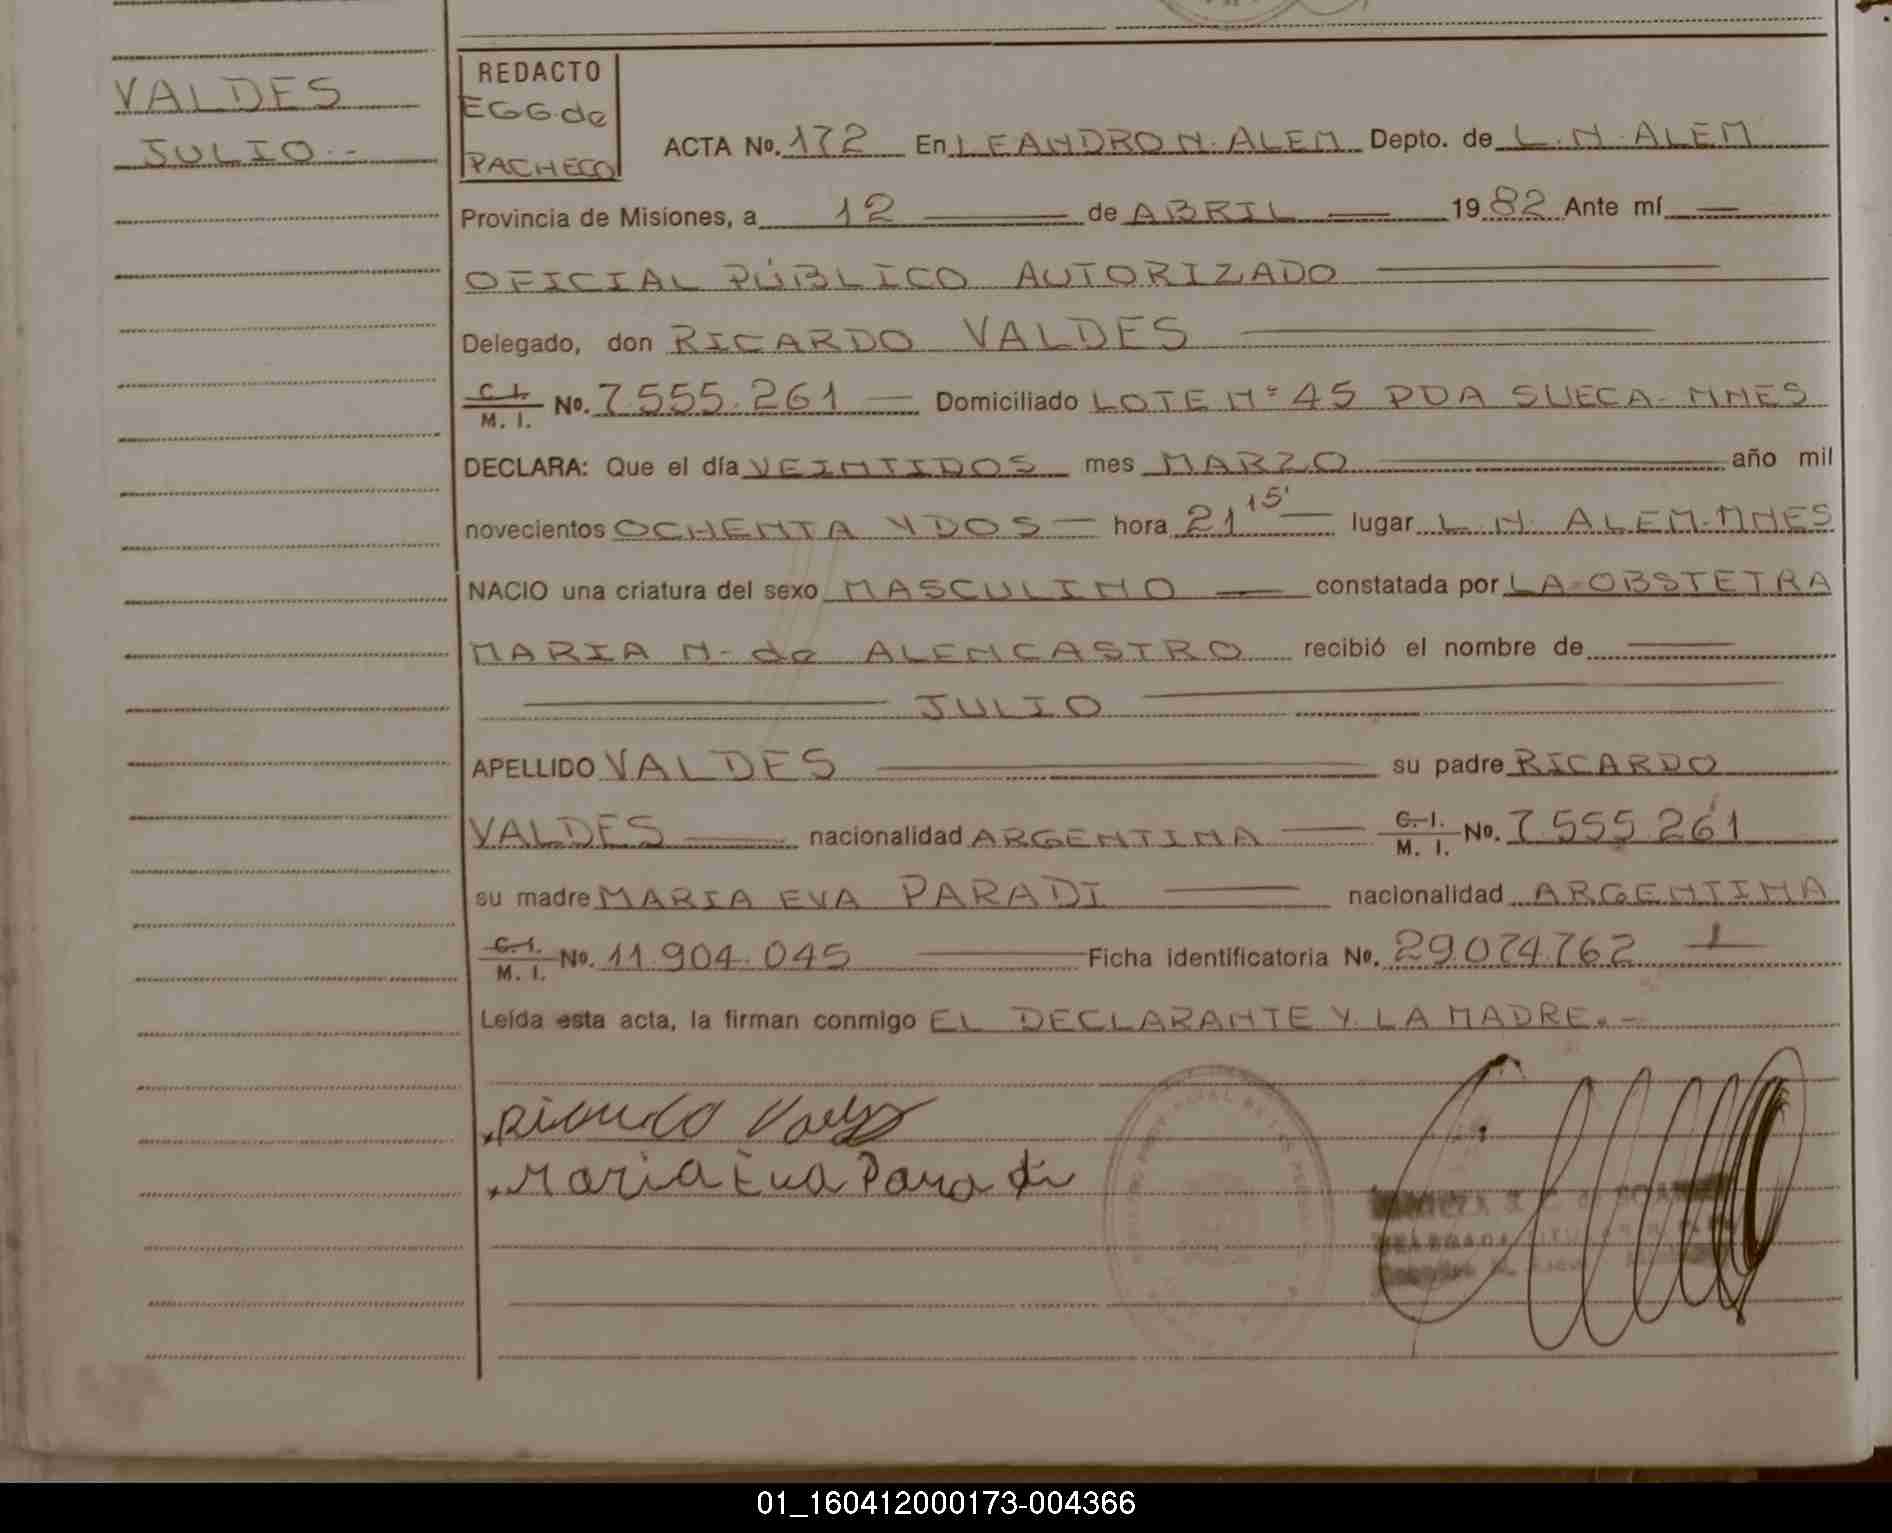 VALDES
JULIO.-
REDACTO
EGG.de
PACHECO
ACTA No. 172 En LEANDRO N. ALEM Depto. de L. N. ALEM
Provincia de Misiones, a 12 de ABRIL 1982 Ante mí
OFICIAL PÚBLICO AUTORIZADO
Delegado, don RICARDO VALDES
C. I.
M. I. No. 7.555.261 Domiciliado LOTE Nº 45 PDA SUECA-MNES
DECLARA: Que el día VEINTIDOS mes MARZO año mil
novecientos OCHENTA Y DOS hora 21 15' lugar L. N. ALEM-MNES
NACIO una criatura del sexo MASCULINO constatada por LA OBSTETRA
MARIA N. de ALENCASTRO recibió el nombre de
JULIO
APELLIDO VALDES su padre RICARDO
VALDES nacionalidad ARGENTINA C. I.
M. I. No. 7.555.261
su madre MARIA EVA PARADI nacionalidad ARGENTINA
C. I.
M. I. No. 11.904.045 Ficha identificatoria No. 29.074.762
Leída esta acta, la firman conmigo EL DECLARANTE Y LA MADRE.-
Ricardo Valdes
Maria Eva Paradi
01_160412000173-004366